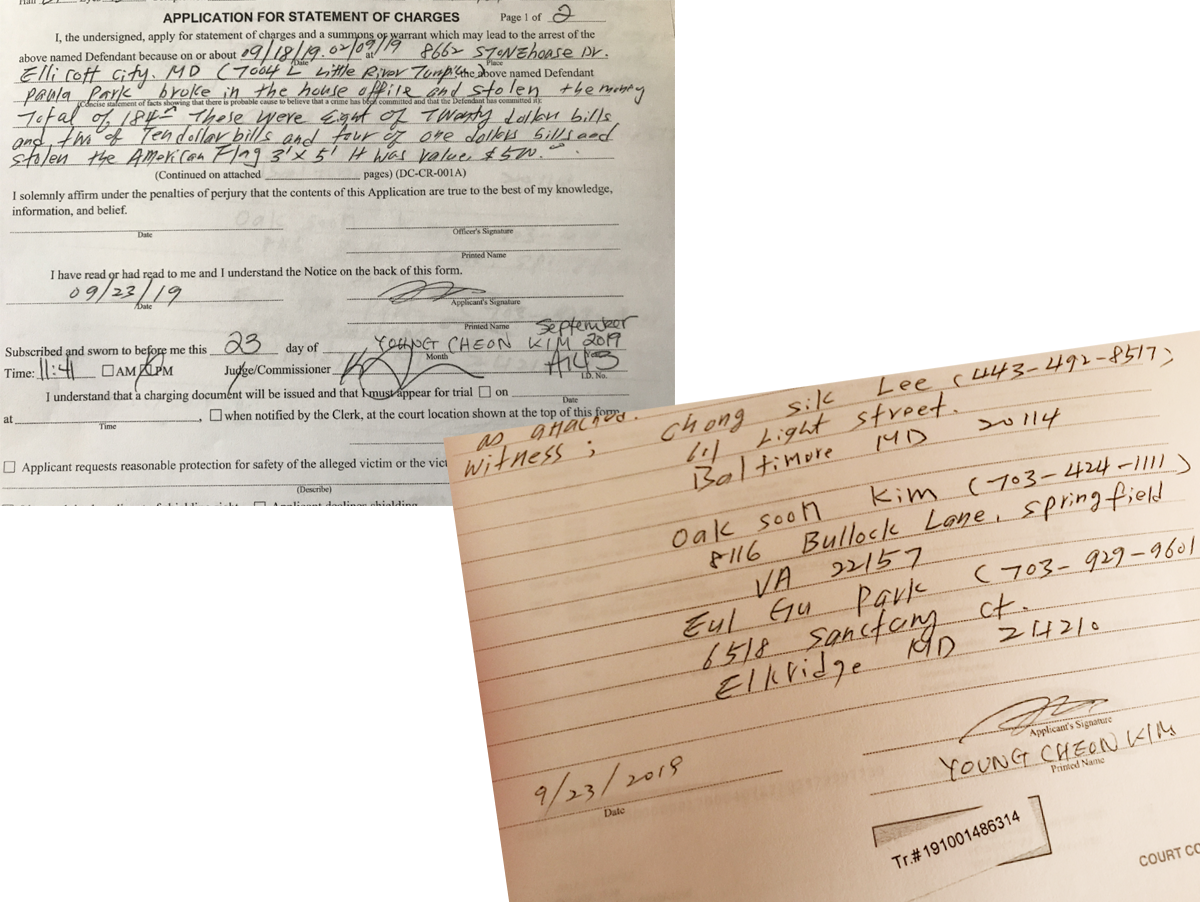 APPLICATION FOR STATEMENT OF CHARGES Page 1 of 2
I, the undersigned, apply for statement of charges and a summons or warrant which may lead to the arrest of the
above named Defendant because on or about 09/18/19. 02/09/19 at 8662 STONEhouse Dr.
Date Place
Ellicott City. MD (7004 L Little River Turnpike the above named Defendant
Paula Park broke in the house office and stolen the money
(Concise statement of facts showing that there is probable cause to believe that a crime has been committed and that the Defendant has committed it):
Total of 184 These were Eight of Twenty dollar bills
and two of Ten dollar bills and four of one dollars bills and
stolen the American Flag 3'x5' It was value $500.
(Continued on attached pages) (DC-CR-001A)
I solemnly affirm under the penalties of perjury that the contents of this Application are true to the best of my knowledge,
information, and belief.
Date Officer's Signature
Printed Name
I have read or had read to me and I understand the Notice on the back of this form.
09/23/19
Date Applicant's Signature
Printed Name September
Subscribed and sworn to before me this 23 day of YOUNG CHEON KIM 2019
Month Year
Time: 11:41 AM PM Judge/Commissioner A143
I.D. No.
I understand that a charging document will be issued and that I must appear for trial on
Date
at , when notified by the Clerk, at the court location shown at the top of this form.
Time
Applicant requests reasonable protection for safety of the alleged victim or the vict
(Describe)
as attached.
witness; Chong sik Lee (443-492-8517;
611 Light street.
Baltimore MD 20114
Oak soon Kim (703-424-1111)
8116 Bullock Lane, springfield
VA 22157
Eul Gu Park (703-929-9601
6518 sanctang ct.
Elkridge MD 21421.
Applicant's Signature
YOUNG CHEON KIM
Printed Name
9/23/2019
Date
Tr.#191001486314
COURT CO